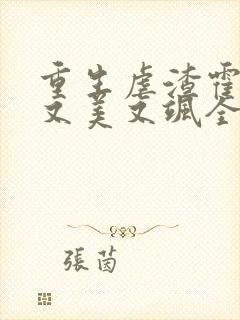 重生虐渣霍
又美又颯全
張茵